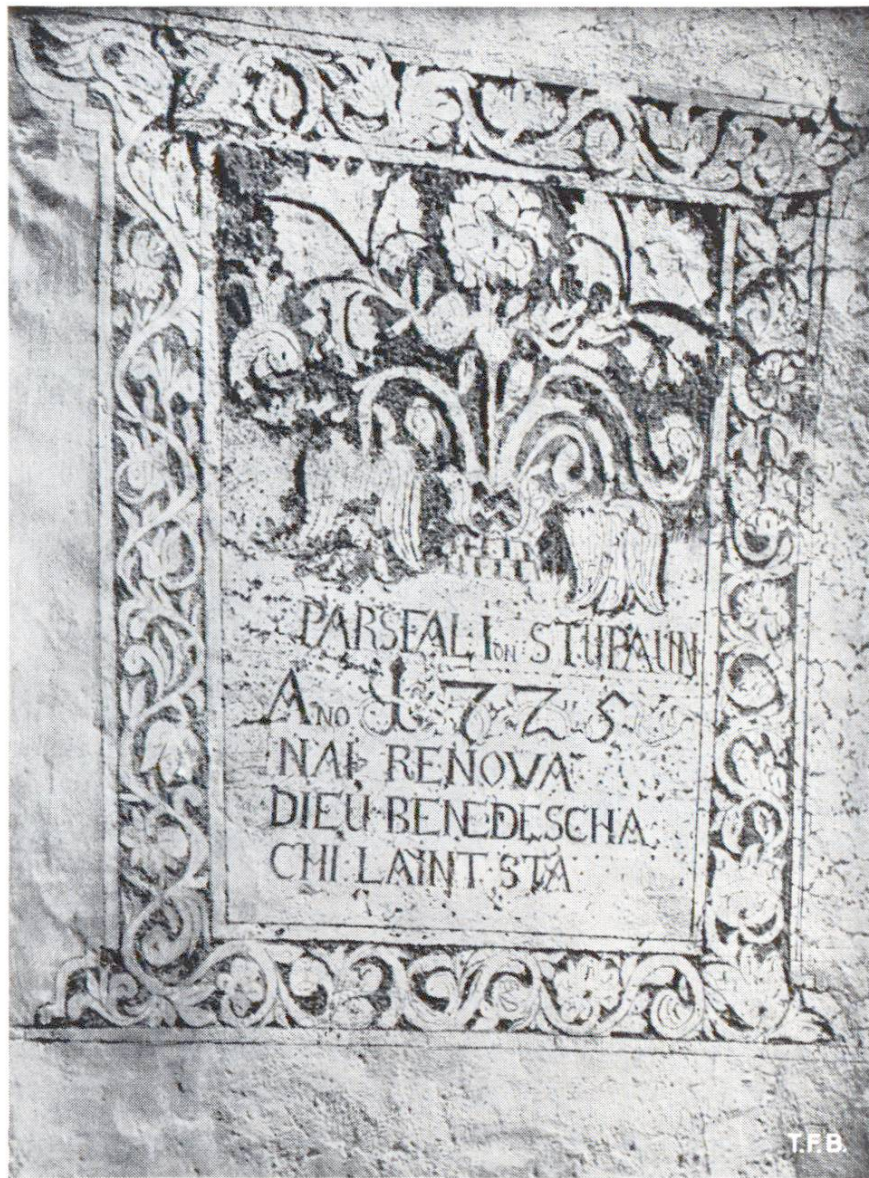 PARSFAL Ion STUPAUN
Ano 1725
NAI RENOVA
DIEU BENEDESCHA
CHI LAINT STA
T.F.B.